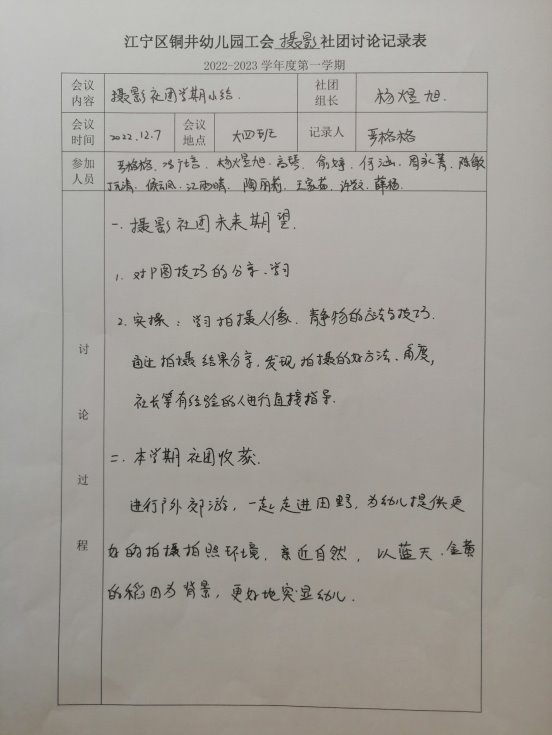 江宁区铜井幼儿园工会 摄影 社团讨论记录表
2022-2023 学年度第一学期
会议内容 摄影社团学期小结. 社团组长 杨煜旭.
会议时间 2022.12.7 会议地点 大四班 记录人 格格
参加人员 格格. 杨煜旭. 高 俞婷. 何 周永菁.
江雨晴. 陶丽莉. 王家茹. 薛杨.
讨论过程
一. 摄影社团未来期望.
1. 对P图技巧的分享、学习
2. 实操：学习拍摄人像、静物的方法与技巧.
通过拍摄结果分享, 发现拍摄的好方法、角度,
社长等有经验的人进行直接指导.
二. 本学期社团收获.
进行户外郊游, 一起走进田野, 为幼儿提供更
好的拍摄拍照环境. 亲近自然, 以蓝天、金黄
的稻田为背景, 更好地突显幼儿.